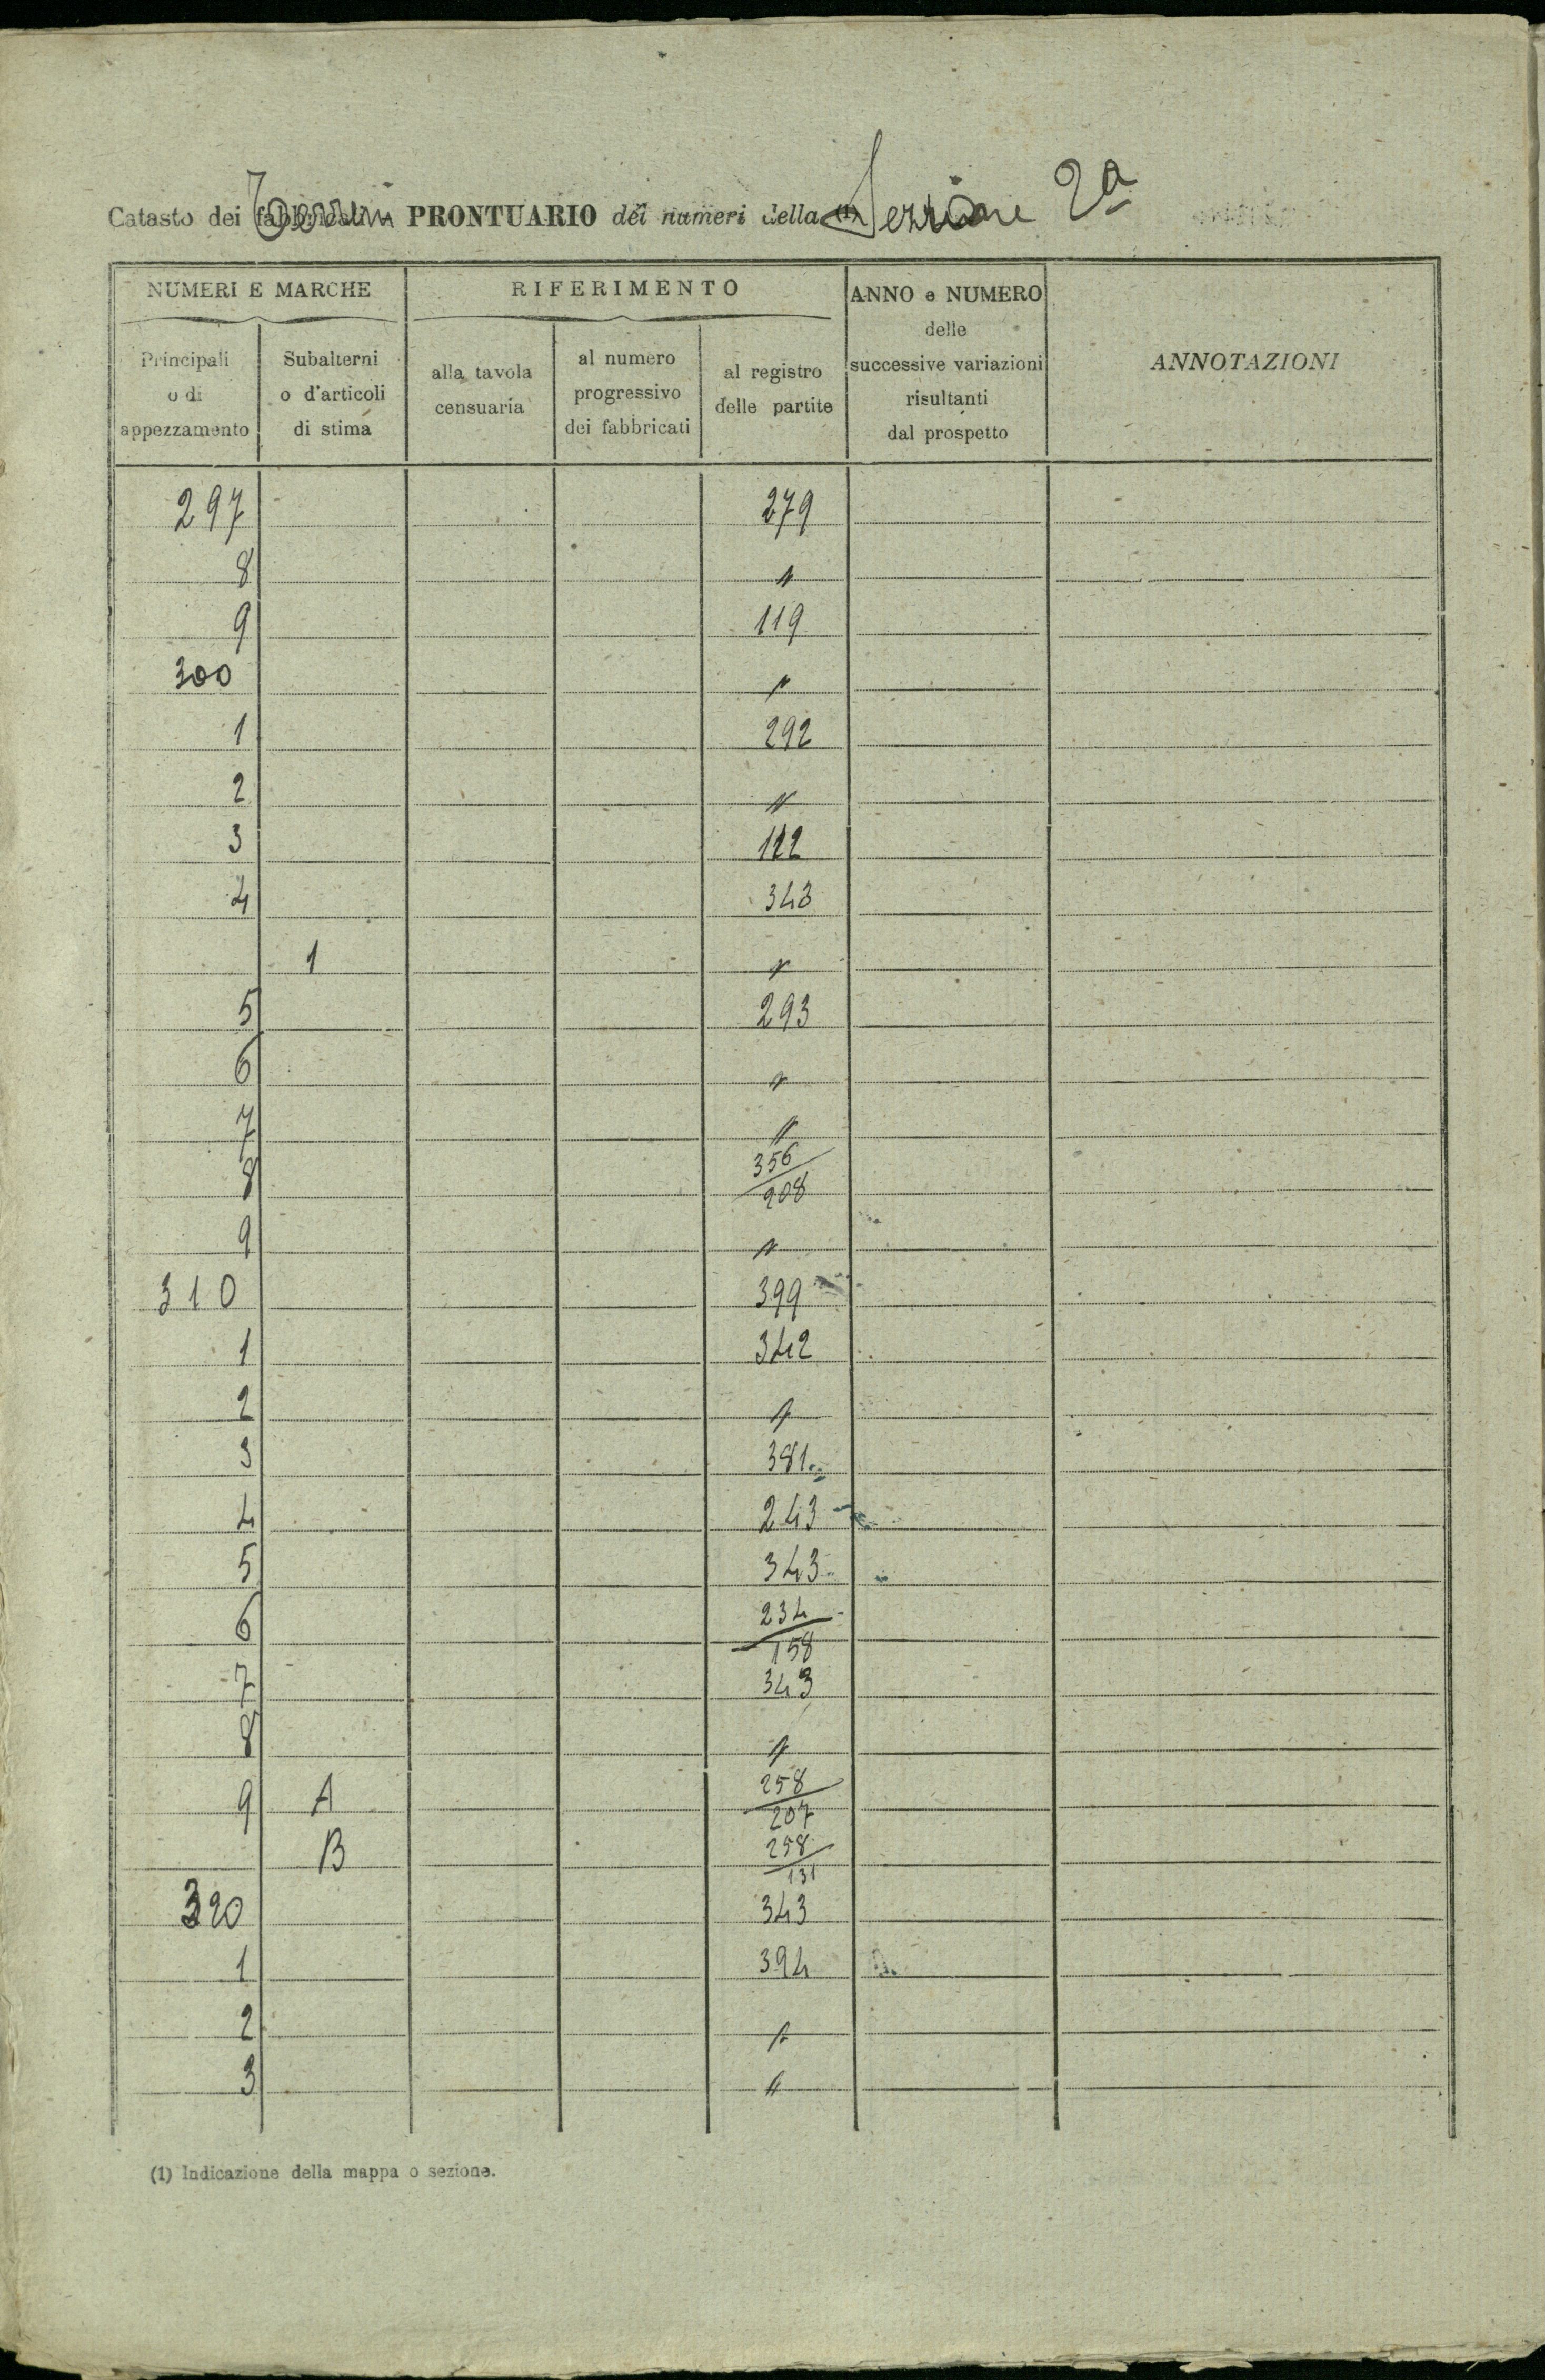 Catasto dei Terreni PRONTUARIO dei numeri della (1) Sezione 2a
NUMERI E MARCHE
RIFERIMENTO
ANNO e NUMERO
delle
successive variazioni
risultanti
dal prospetto
ANNOTAZIONI
Principali
o di
appezzamento
Subalterni
o d'articoli
di stima
alla tavola
censuaria
al numero
progressivo
dei fabbricati
al registro
delle partite
297 279
8 "
9 119
300 "
1 292
2 "
3 112
4 343
1 "
5 293
6 "
7 "
8 356/208
9 "
310 399
1 342
2 "
3 381
4 243
5 343
6 234/158
7 343
8 "
9 A 258/207
B 258/131
320 343
1 394
2 "
3 "
(1) Indicazione della mappa o sezione.